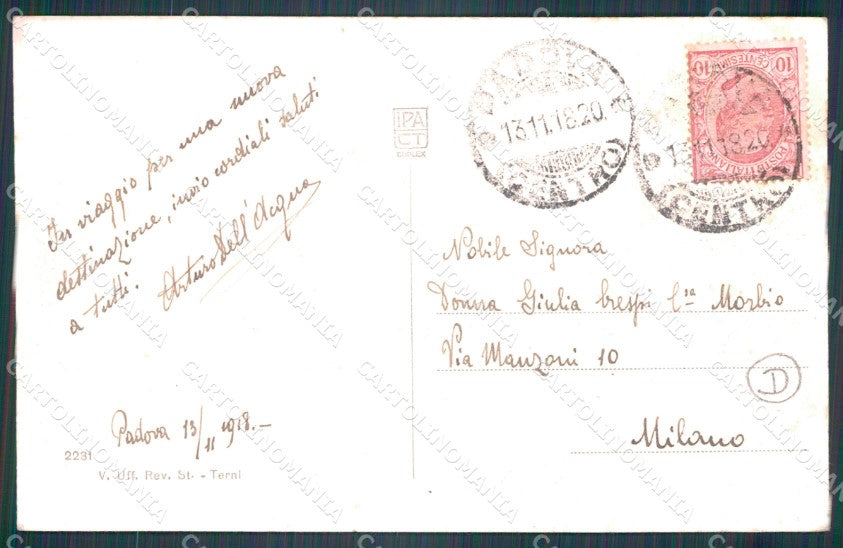 In viaggio per una nuova
destinazione, invio cordiali saluti
a tutti.
Arturo Dell'Acqua
Padova 13/11 1918.-
2231
V. Uff. Rev. St. - Terni
IPA
CT
DUPLEX
PADOVA
13.11.18.20
(CENTRO)
13.11.18.20
(CENTRO)
10 CENTESIMI 10
POSTE ITALIANE
Nobile Signora
Donna Giulia Crespi C.sa Morbio
Via Manzoni 10
D
Milano
CARTOLINOMANIA